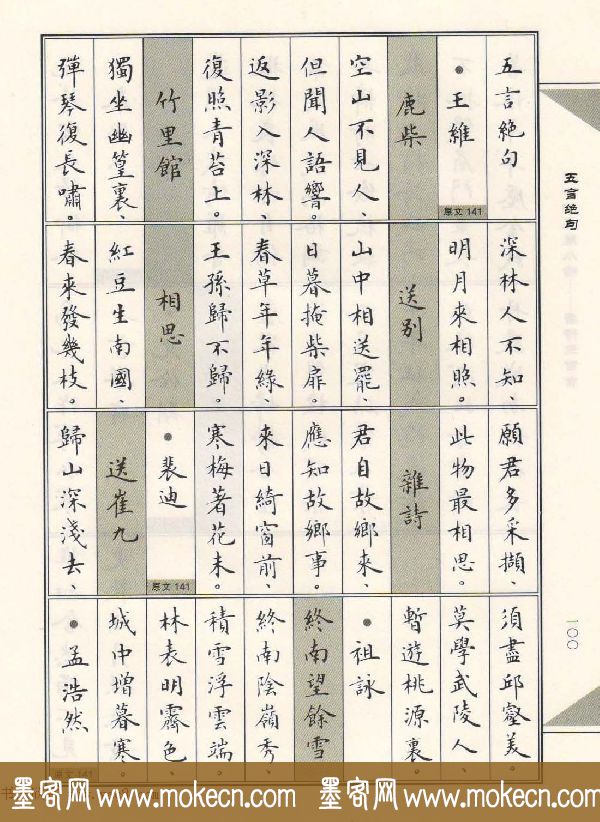 五言絕句
•王維
原文141
鹿柴
空山不見人、
但聞人語響。
返影入深林、
復照青苔上。
竹里館
獨坐幽篁裏、
彈琴復長嘯。
深林人不知、
明月來相照。
送别
山中相送罷、
日暮掩柴扉。
春草年年綠、
王孫歸不歸。
相思
紅豆生南國、
春來發幾枝。
願君多采擷、
此物最相思。
雜詩
君自故鄉來、
應知故鄉事。
來日綺窗前、
寒梅著花未。
•裴迪
原文141
送崔九
歸山深淺去、
須盡邱壑美。
莫學武陵人、
暫遊桃源裏。
•祖詠
終南望餘雪
終南陰嶺秀、
積雪浮雲端。
林表明霽色、
城中增暮寒。
•孟浩然
原文141
五言绝句
一〇〇
墨客网 www.mokecn.com 墨客网 www.mokecn.com